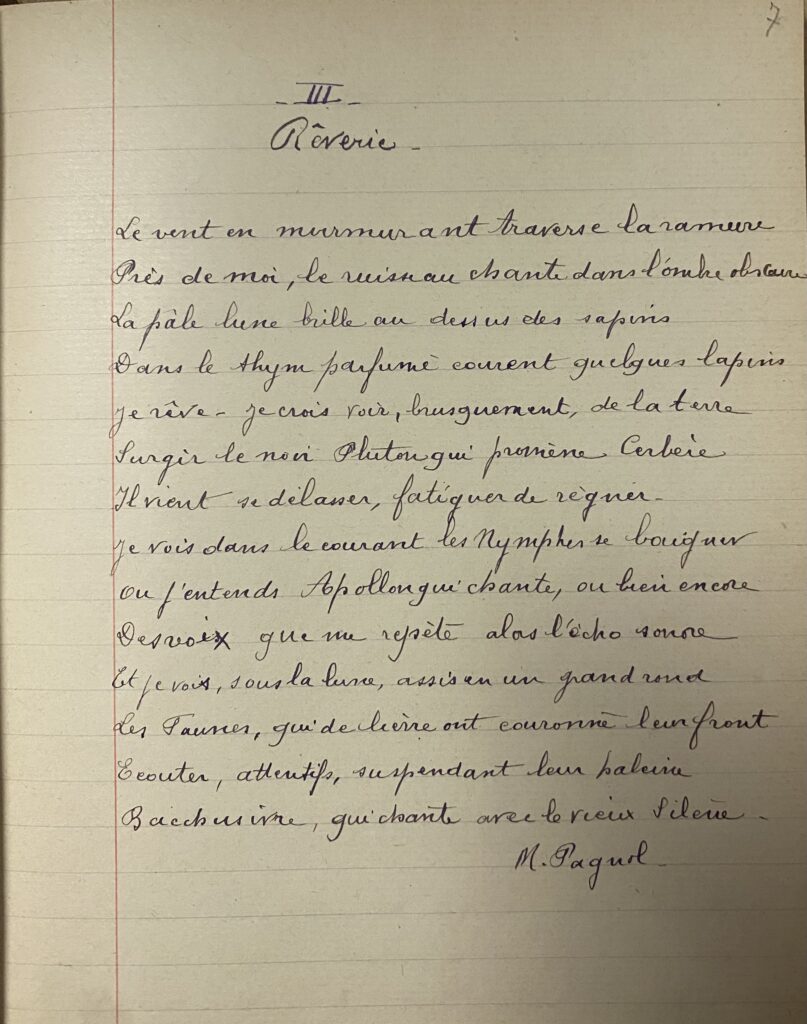 7
- III -
Rêverie -
Le vent en murmurant traverse la ramure
Près de moi, le ruisseau chante dans l'ombre obscure
La pâle lune brille au dessus des sapins
Dans le thym parfumé courent quelques lapins
Je rêve - je crois voir, brusquement, de la terre
Surgir le noir Pluton qui promène Cerbère
Il vient se délasser, fatiguer de règner -
Je vois dans le courant les Nymphes se baigner
Ou j'entends Apollon qui chante, ou bien encore
Des voix que me repète alors l'écho sonore
Et je vois, sous la lune, assis en un grand rond
Les Faunes, qui de lierre ont couronné leur front
Ecouter, attentifs, suspendant leur haleine
Bacchus ivre, qui chante avec le vieux Silène -
M. Pagnol -